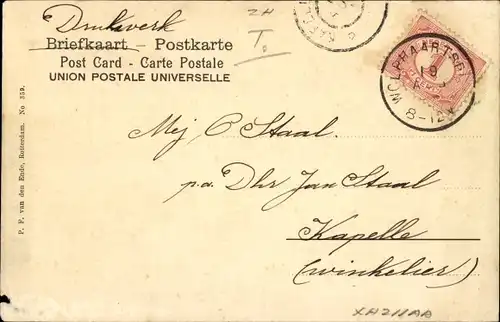 Drukwerk
Briefkaart – Postkarte
Post Card - Carte Postale
UNION POSTALE UNIVERSELLE
ZH
T.
WOLPHAARTSD
19
8-12V
Mej C Staal.
p.a. Dhr Jan Staal
Kapelle
(winkelier)
P. F. van den Ende, Rotterdam. No 359.
XH211AA